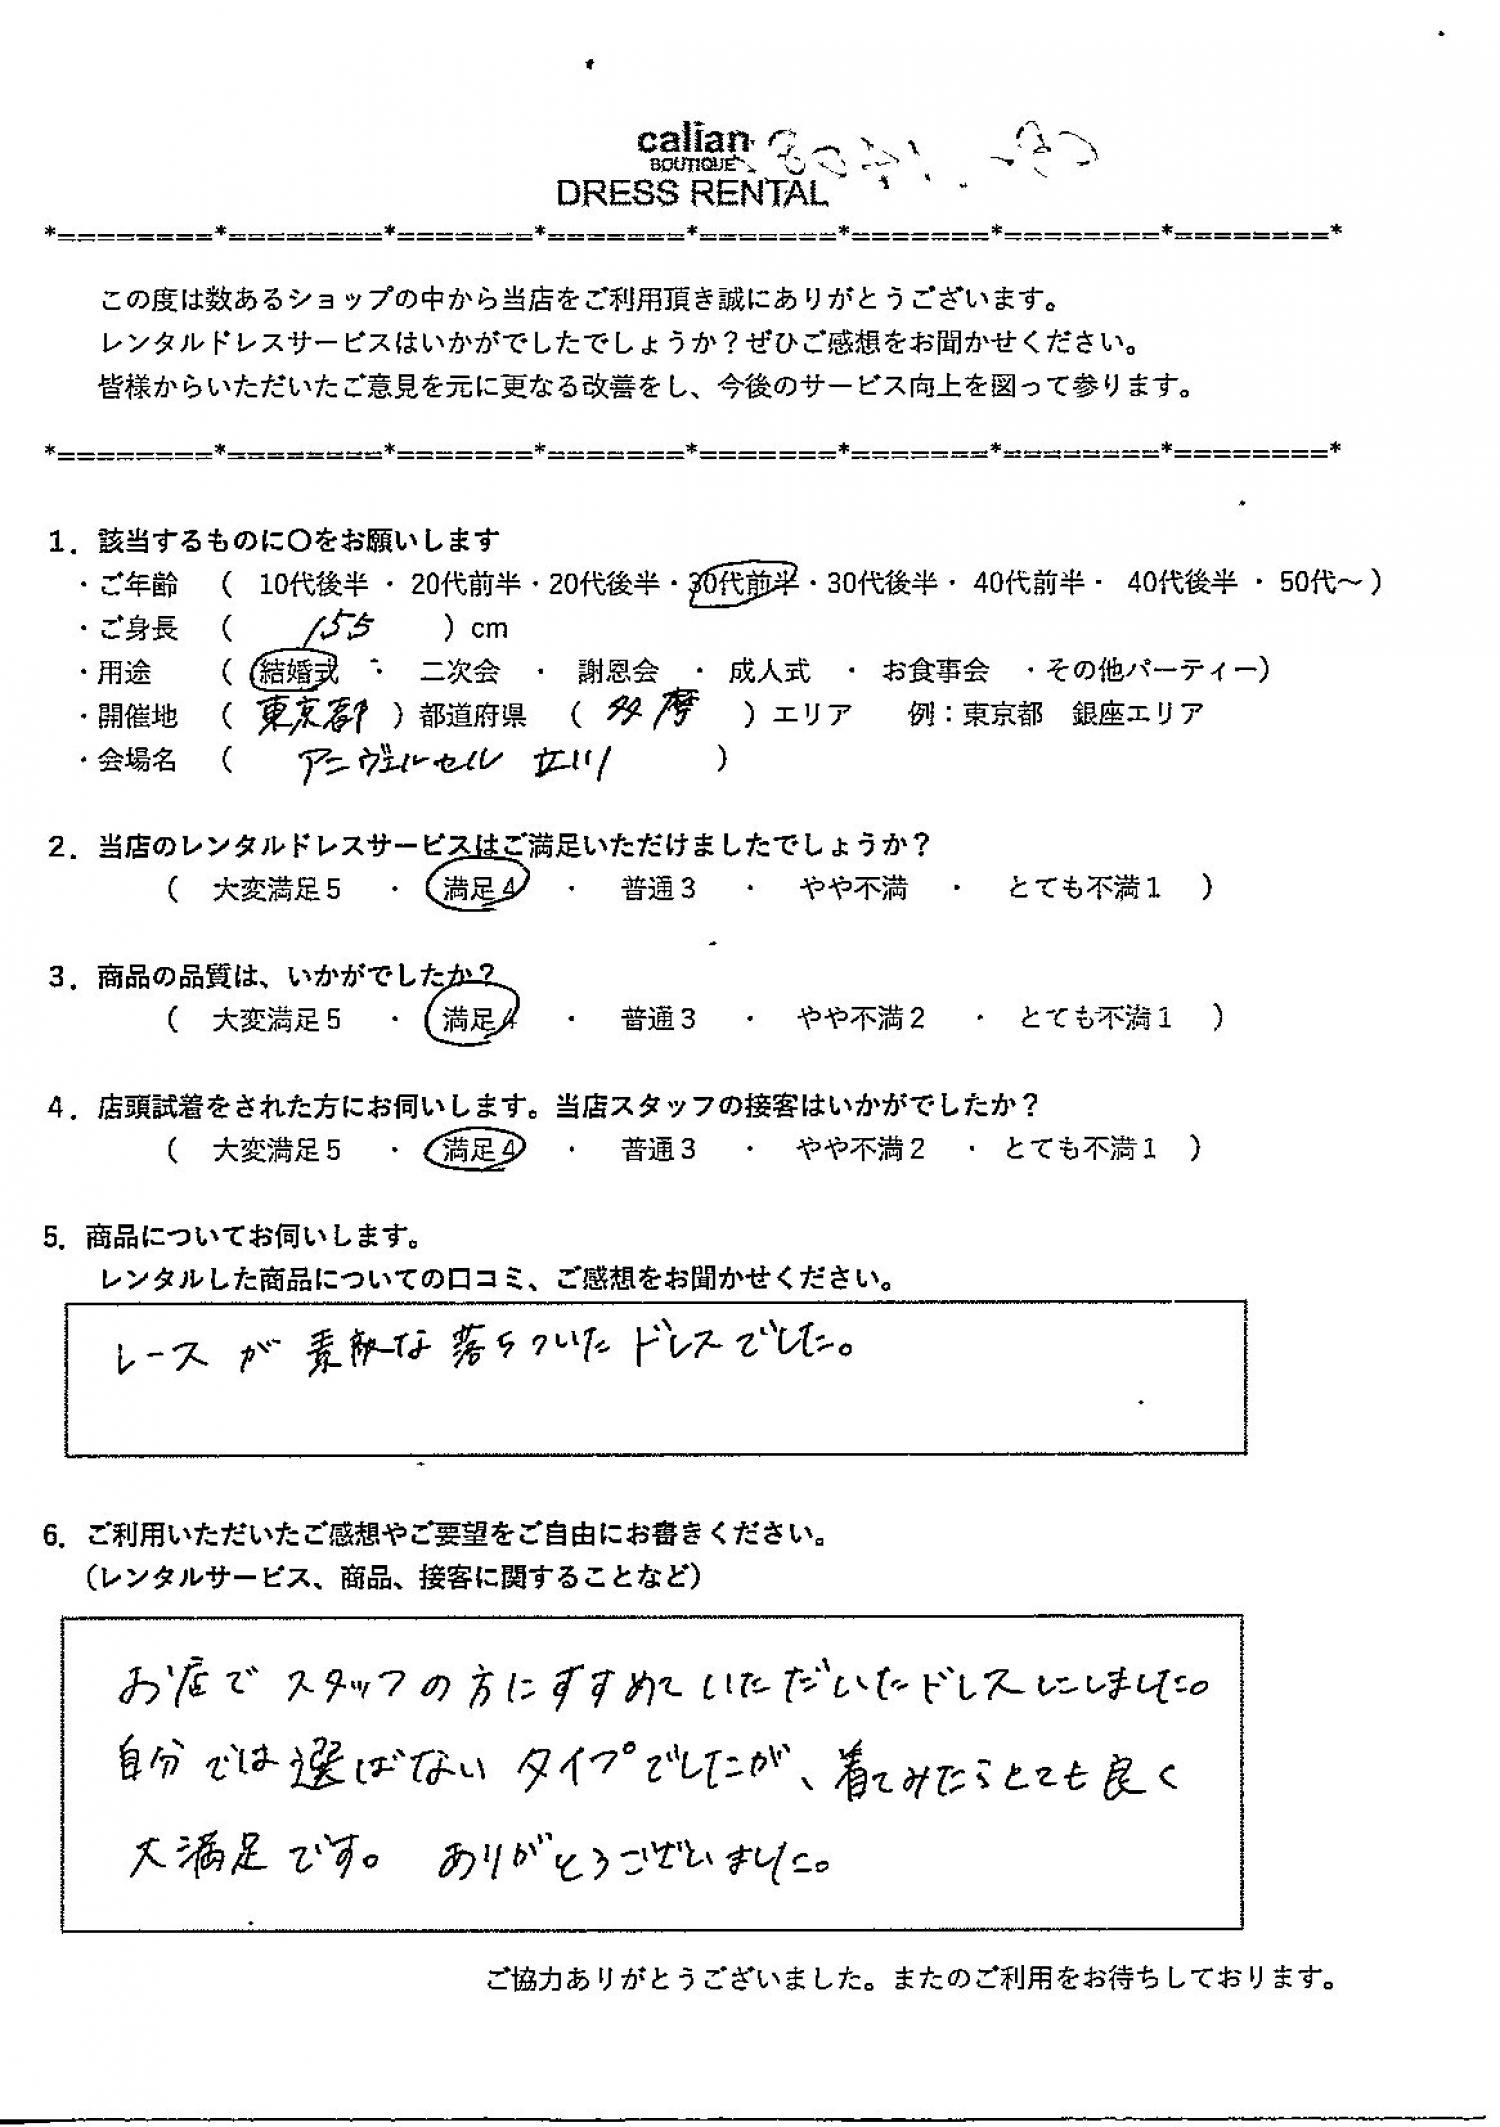 calian
BOUTIQUE
DRESS RENTAL
*========*========*=======*=======*=======*=======*========*========*
この度は数あるショップの中から当店をご利用頂き誠にありがとうございます。
レンタルドレスサービスはいかがでしたでしょうか？ぜひご感想をお聞かせください。
皆様からいただいたご意見を元に更なる改善をし、今後のサービス向上を図って参ります。
*========*========*=======*=======*=======*=======*========*========*
1．該当するものに〇をお願いします
・ご年齢 （ 10代後半 ・ 20代前半・20代後半・30代前半・30代後半・ 40代前半・ 40代後半 ・ 50代～ ）
・ご身長 （ 155 ）cm
・用途 （ 結婚式 ・ 二次会 ・ 謝恩会 ・ 成人式 ・ お食事会 ・その他パーティー）
・開催地 （ 東京都 ）都道府県 （ 多摩 ）エリア 例：東京都 銀座エリア
・会場名 （ アニヴェルセル 立川 ）
2．当店のレンタルドレスサービスはご満足いただけましたでしょうか？
（ 大変満足５ ・ 満足４ ・ 普通３ ・ やや不満 ・ とても不満１ ）
3．商品の品質は、いかがでしたか？
（ 大変満足５ ・ 満足４ ・ 普通３ ・ やや不満２ ・ とても不満１ ）
4．店頭試着をされた方にお伺いします。当店スタッフの接客はいかがでしたか？
（ 大変満足５ ・ 満足４ ・ 普通３ ・ やや不満２ ・ とても不満１ ）
5．商品についてお伺いします。
レンタルした商品についての口コミ、ご感想をお聞かせください。
レースが素敵な落ちついたドレスでした。
6．ご利用いただいたご感想やご要望をご自由にお書きください。
（レンタルサービス、商品、接客に関することなど）
お店でスタッフの方にすすめていただいたドレスにしました。
自分では選ばないタイプでしたが、着てみたらとても良く
大満足です。 ありがとうございました。
ご協力ありがとうございました。またのご利用をお待ちしております。